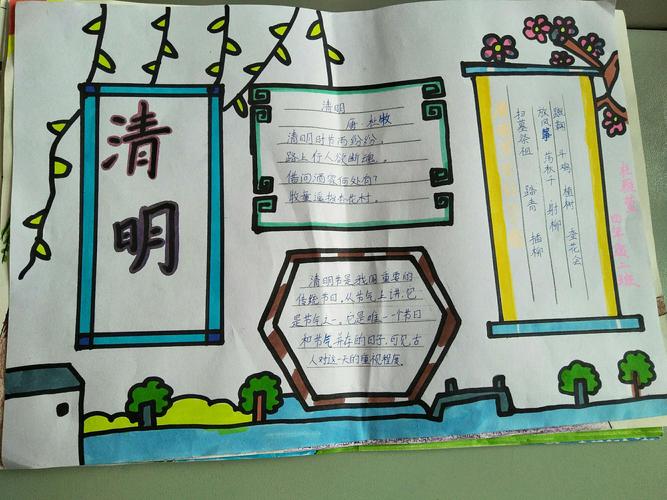 清明
清明
唐 杜牧
清明时节雨纷纷，
路上行人欲断魂。
借问酒家何处有？
牧童遥指杏花村。
清明节是我国重要的
传统节日，从节气上讲，它
是节气之一。它是唯一一个节日
和节气并存的日子，可见古
人对这一天的重视程度。
蹴鞠 斗鸡 植树 蚕花会
放风筝 荡秋千 射柳
扫墓祭祖 踏青 插柳
四年级二班